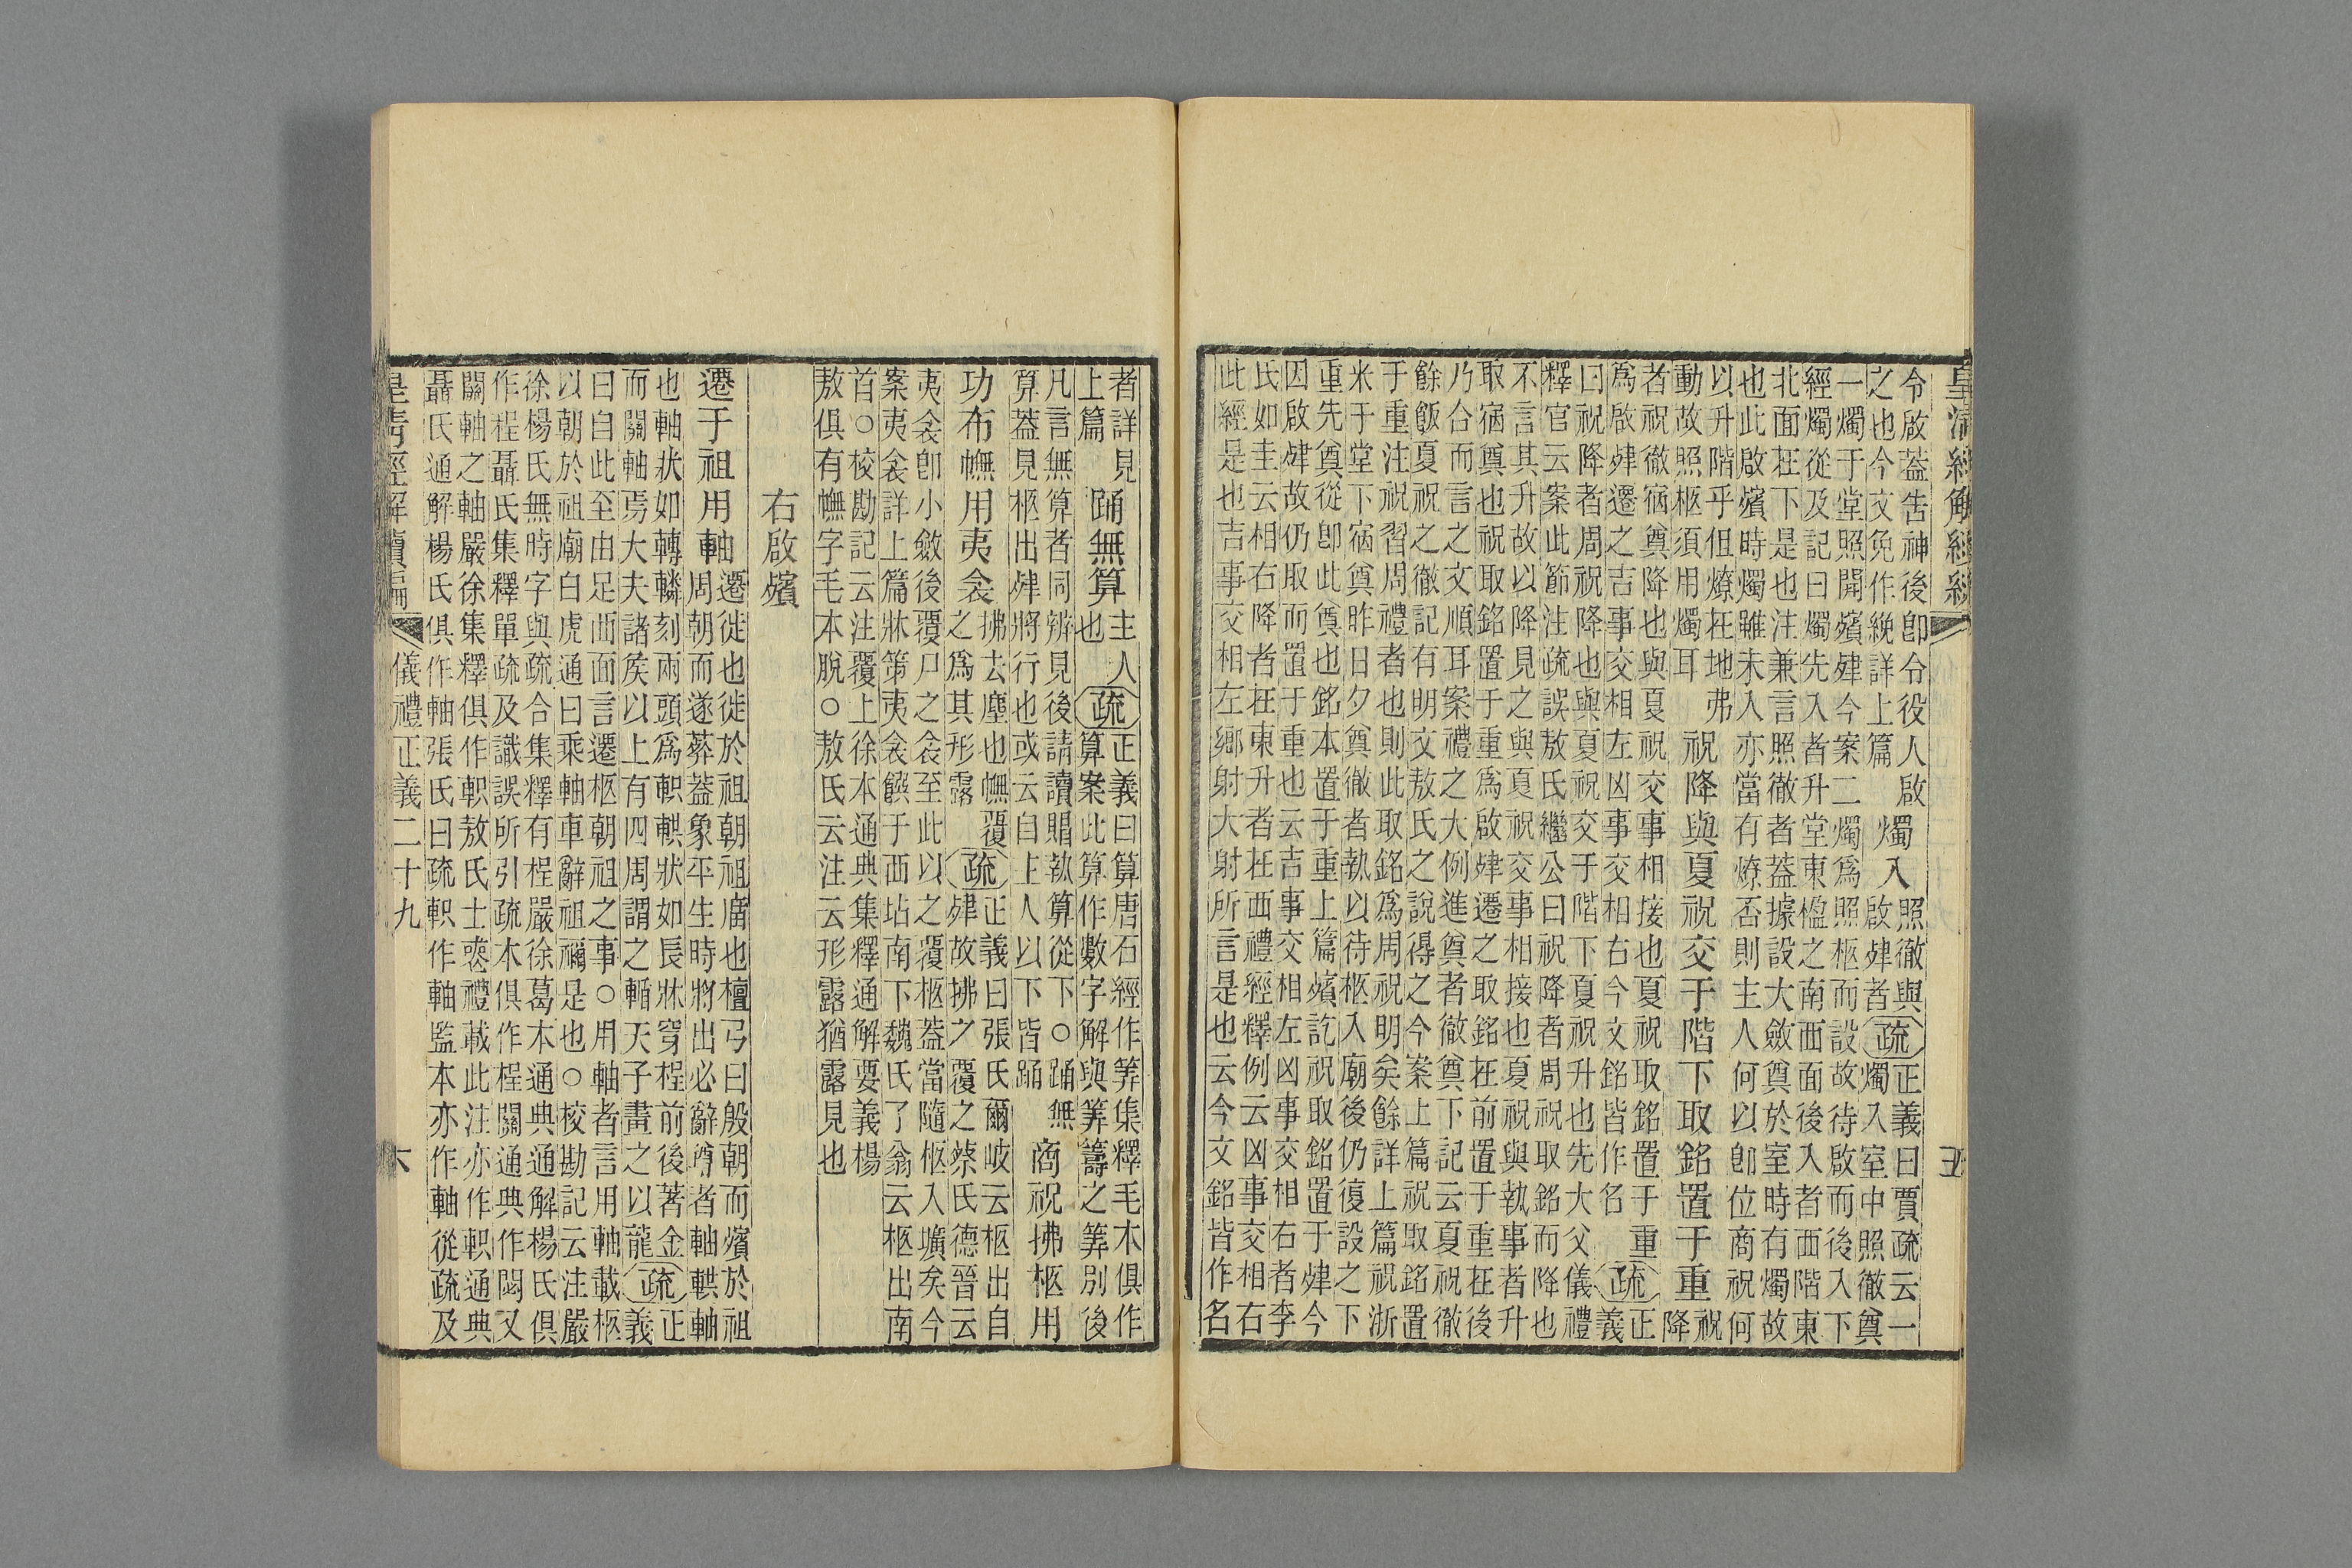 皇清經解經
五
令啟蓋告神後卽令役人啟
之也今文免作絻詳上篇
燭入
照徹與
啟肂者
疏
正義曰賈疏云一
燭入室中照徹奠
一燭于堂照開殯肂今案二燭爲照柩而設故待啟而後入下
經燭從及記曰燭先入者升堂東楹之南西面後入者西階東
北面在下是也注兼言照徹者蓋據設大斂奠於室時有燭故
也此啟殯時燭雖未入亦當有燎否則主人何以卽位商祝何
以升階乎但燎在地弗
動故照柩須用燭耳
祝降與夏祝交于階下取銘置于重
祝
降
者祝徹宿奠降也與夏祝交事相接也夏祝取銘置于重
爲啟肂遷之吉事交相左凶事交相右今文銘皆作名
疏
正
義
曰祝降者周祝降也與夏祝交于階下夏祝升也先大父儀禮
釋官云案此節注疏誤敖氏繼公曰祝降者周祝取銘而降也
不言其升故以降見之與夏祝交事相接也夏祝與執事者升
取宿奠也祝取銘置于重爲啟肂遷之取銘在前置于重在後
乃合而言之文順耳案禮之大例進奠者徹奠下記云夏祝徹
餘飯夏祝之徹記有明文敖氏之說得之今案上篇祝取銘置
于重注祝習周禮者也則此取銘爲周祝明矣餘詳上篇祝淅
米于堂下宿奠昨日夕奠徹者執以待柩入廟後仍復設之下
重先奠從卽此奠也銘本置于重上篇殯訖祝取銘置于肂今
因啟肂故仍取而置于重也云吉事交相左凶事交相右者李
氏如圭云相右降者在東升者在西禮經釋例云凶事交相右
此經是也吉事交相左鄉射大射所言是也云今文銘皆作名
者詳見
上篇
踊無算
主人
也
疏
正義曰算唐石經作筭集釋毛本俱作
算案此算作數字解與筭籌之筭別後
凡言無算者同辨見後請讀賵執算從下○踊無
算蓋見柩出肂將行也或云自上人以下皆踊
商祝拂柩用
功布幠用夷衾
拂去塵也幠覆
之爲其形露
疏
正義曰張氏爾岐云柩出自
肂故拂之覆之蔡氏德晉云
夷衾卽小斂後覆尸之衾至此以之覆柩蓋當隨柩入壙矣今
案夷衾詳上篇牀笫夷衾饌于西坫南下魏氏了翁云柩出南
首○校勘記云注覆上徐本通典集釋通解要義楊
敖俱有幠字毛本脫○敖氏云注云形露猶露見也
右啟殯
遷于祖用軸
遷徙也徙於祖朝祖廟也檀弓曰殷朝而殯於祖
周朝而遂葬蓋象平生時將出必辭尊者軸輁軸
也軸狀如轉轔刻兩頭爲軹輁狀如長牀穿桯前後著金
而關軸焉大夫諸侯以上有四周謂之輴天子畫之以龍
疏
正
義
曰自此至由足西面言遷柩朝祖之事○用軸者言用軸載柩
以朝於祖廟白虎通曰乘軸車辭祖禰是也○校勘記云注嚴
徐楊氏無時字與疏合集釋有桯嚴徐葛本通典通解楊氏俱
作程聶氏集釋單疏及識誤所引疏本俱作桯關通典作閞又
關軸之軸嚴徐集釋俱作軹敖氏士喪禮載此注亦作軹通典
聶氏通解楊氏俱作軸張氏曰疏軹作軸監本亦作軸從疏及
皇清經解續編 儀禮正義二十九 六